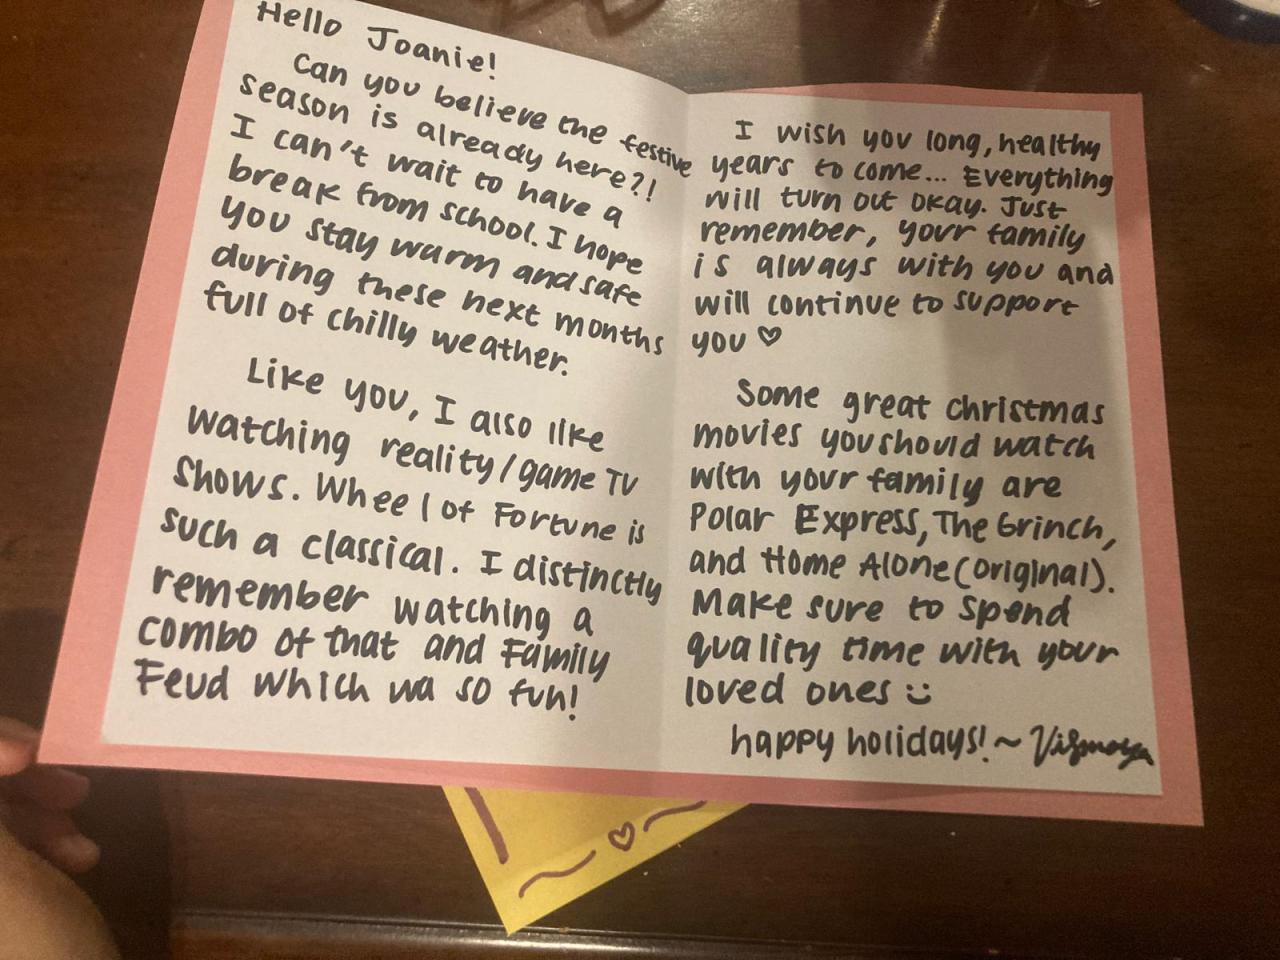 Hello Joanie!
Can you believe the festive
season is already here?!
I can't wait to have a
break from school. I hope
you stay warm and safe
during these next months
full of chilly weather.
Like you, I also like
watching reality/game TV
shows. Wheel of Fortune is
such a classical. I distinctly
remember watching a
combo of that and Family
Feud which wa so fun!
I wish you long, healthy
years to come... Everything
will turn out okay. Just
remember, your family
is always with you and
will continue to support
you ♡
Some great christmas
movies you should watch
with your family are
Polar Express, The Grinch,
and Home Alone (original).
Make sure to spend
quality time with your
loved ones :)
happy holidays! ~ Vismaya